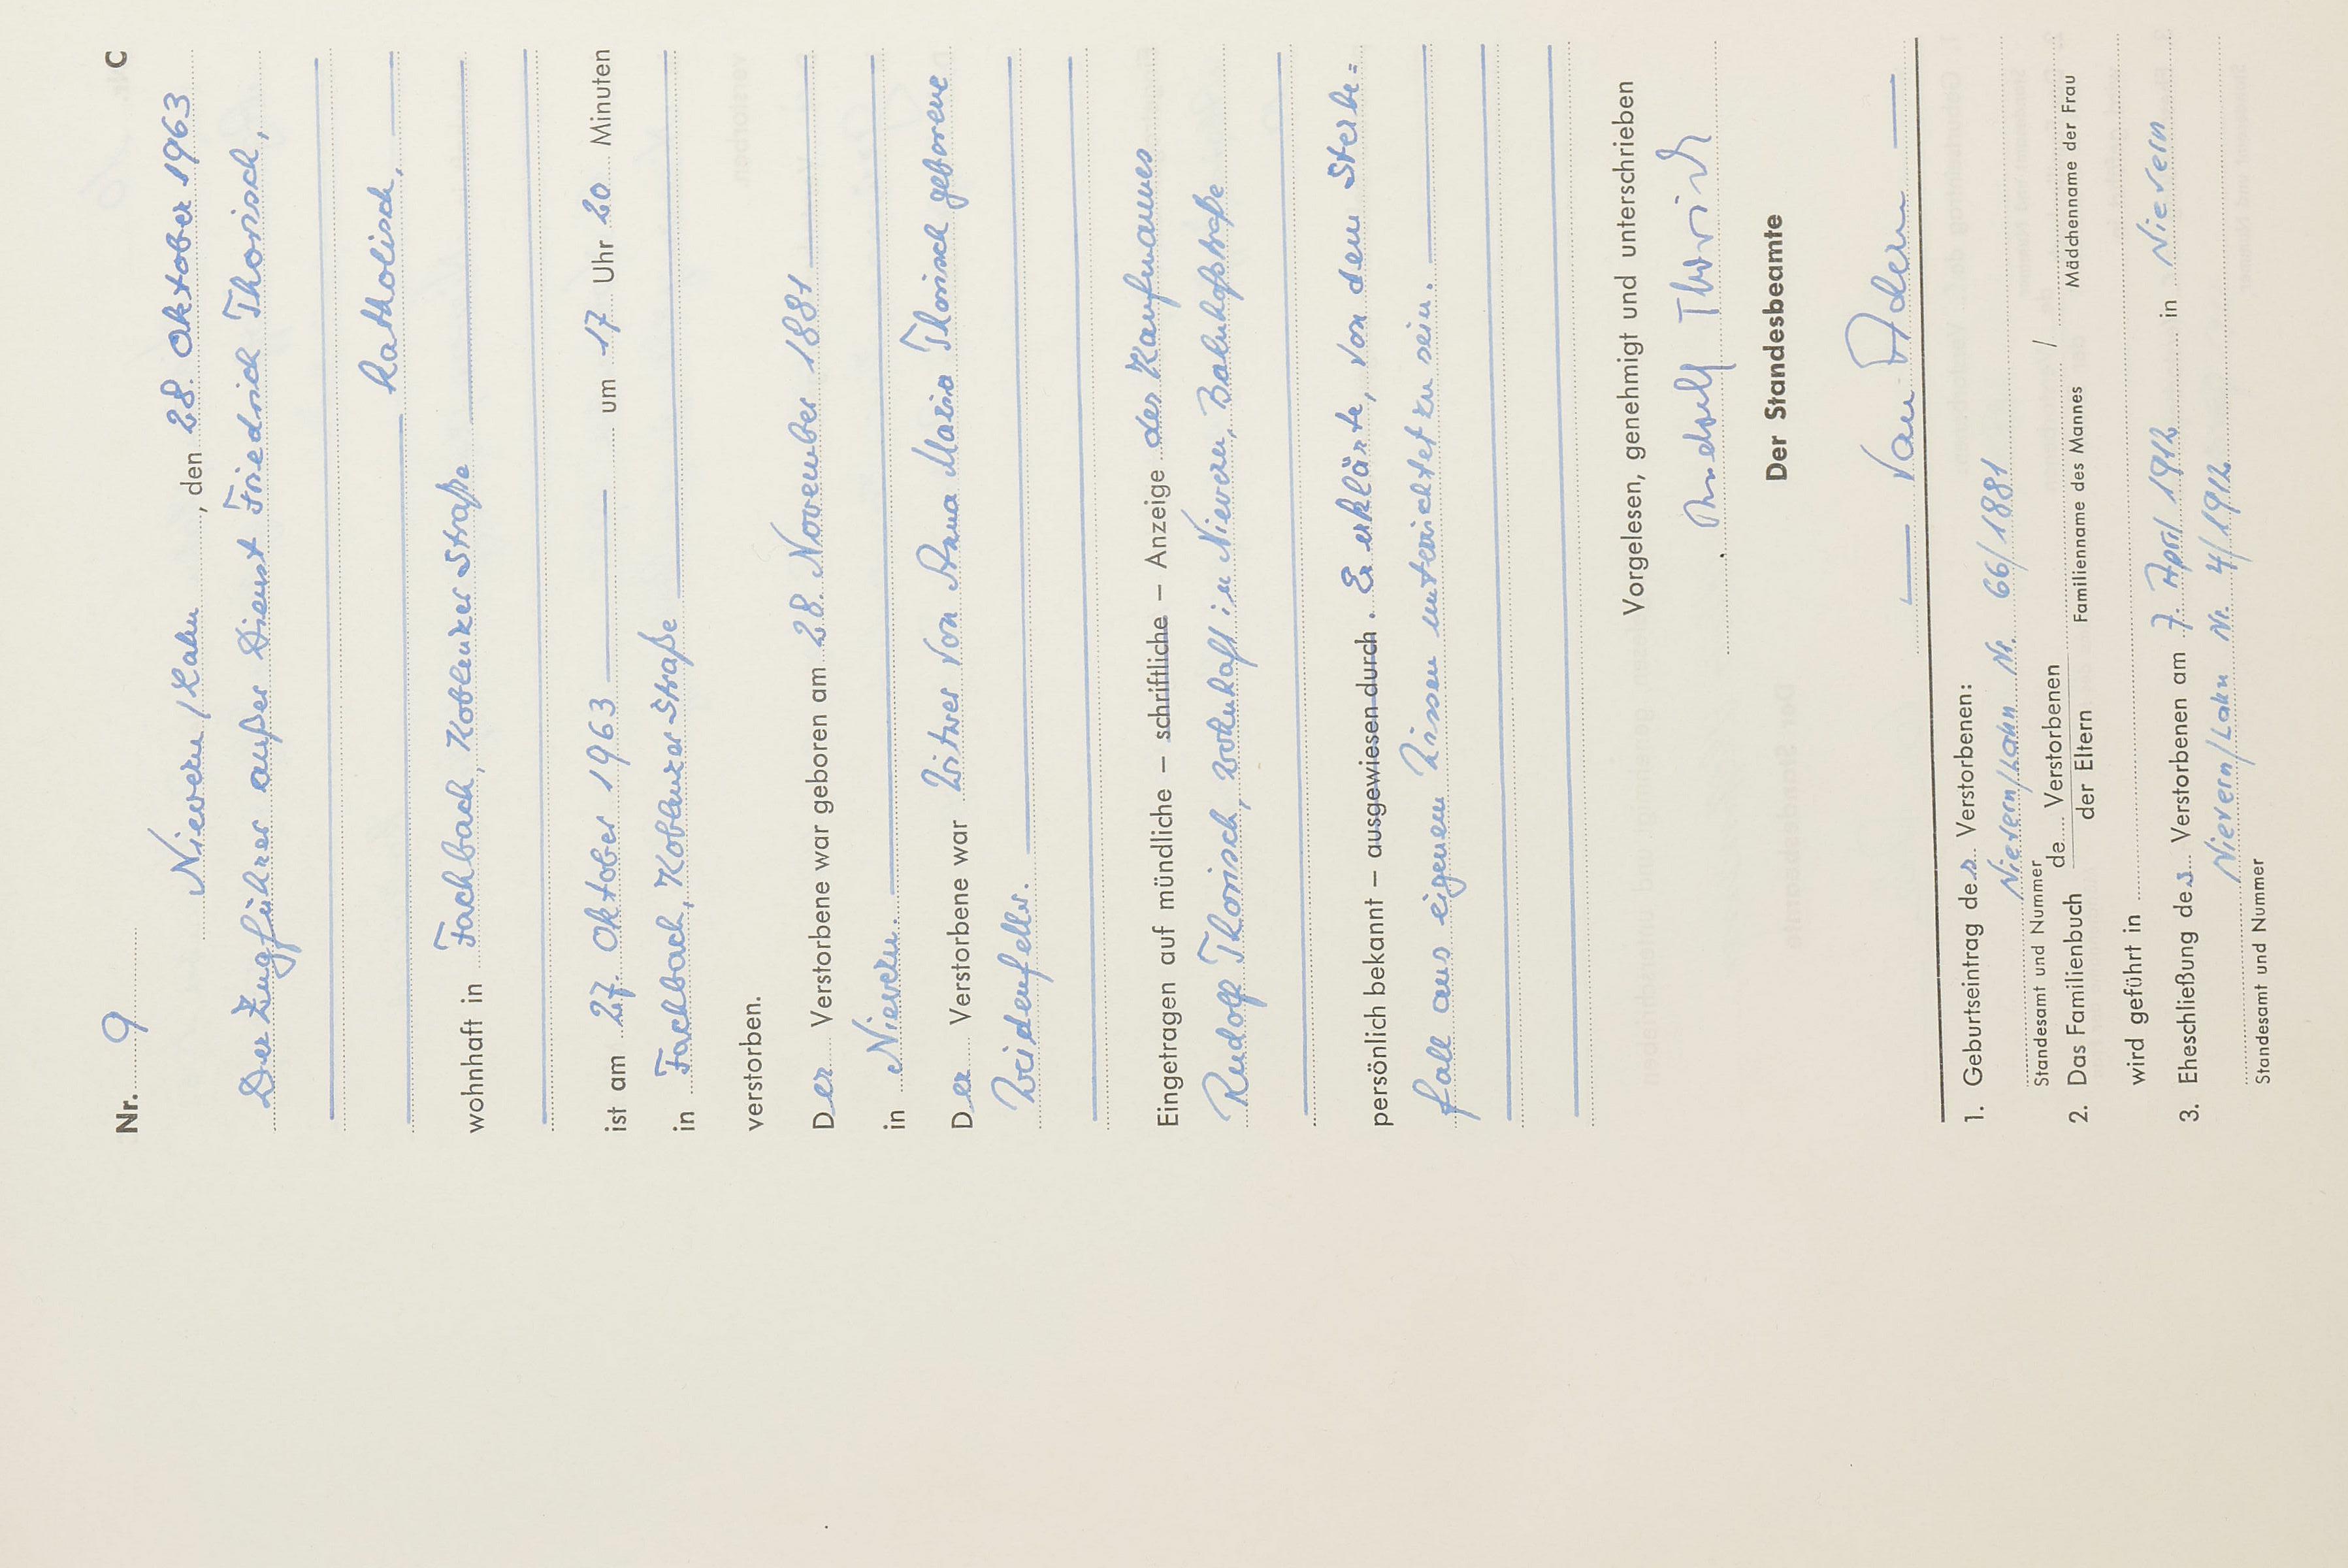 Nr. 9 C
Nievern/Lahn, den 28. Oktober 1963
Der Zugführer außer Dienst Friedrich Thorisch,
katholisch,
wohnhaft in Fachbach, Koblenzer Straße
ist am 27. Oktober 1963 um 17 Uhr 20 Minuten
in Fachbach, Koblenzer Straße
verstorben.
Der Verstorbene war geboren am 28. November 1881
in Nievern.
Der Verstorbene war Witwer von Anna Maria Thorisch geborene
Weidenfeller.
Eingetragen auf mündliche – schriftliche – Anzeige des Kaufmannes
Rudolf Thorisch, wohnhaft in Nievern, Bahnhofstraße
persönlich bekannt – ausgewiesen durch. Er erklärte, von dem Sterbe=
fall aus eigenem Wissen unterrichtet zu sein.
Vorgelesen, genehmigt und unterschrieben
Rudolf Thorisch
Der Standesbeamte
1. Geburtseintrag des Verstorbenen:
Nievern/Lahn Nr. 66/1881
Standesamt und Nummer
2. Das Familienbuch de Verstorbenen der Eltern /
Familienname des Mannes Mädchenname der Frau
wird geführt in
3. Eheschließung des Verstorbenen am 7. April 1912 in Nievern
Nievern/Lahn Nr. 4/1912
Standesamt und Nummer